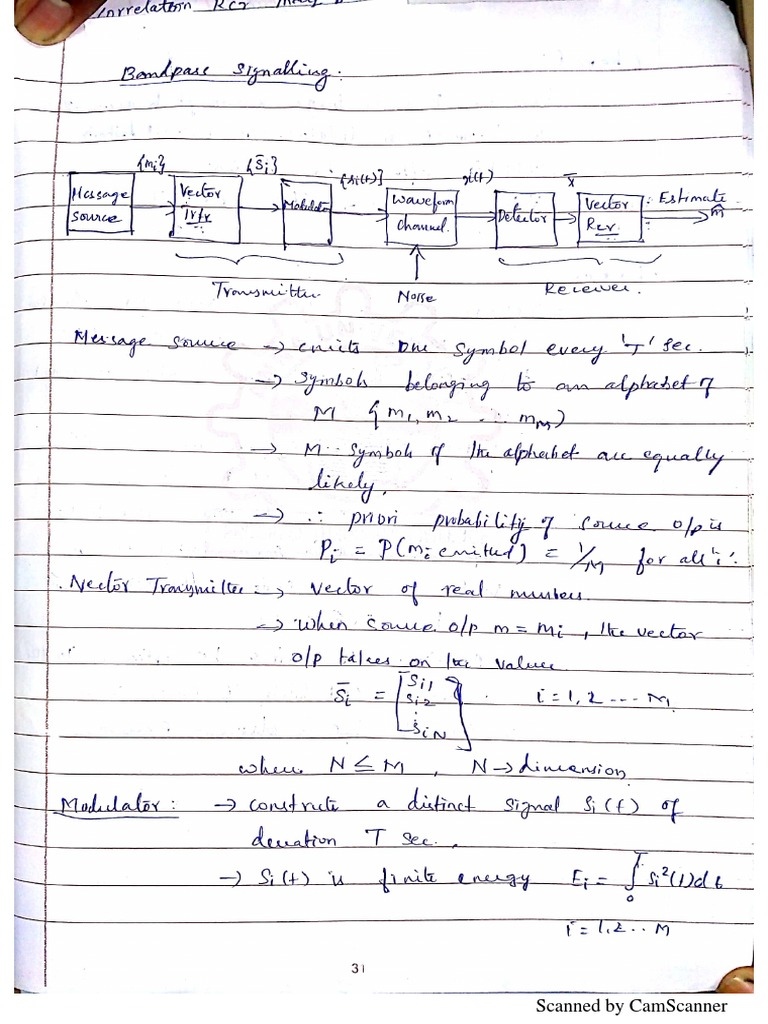 Correlation Rcr
Bandpass Signalling.
{mi} {s̄i} {si(t)} x(t) x̄
Message source
Vector Trtr
Modulator
Waveform channel
Detector
Vector Rcr
Estimate m̂
Transmitter Noise Receiver.
Message source → emits one symbol every 'T' sec.
→ symbols belonging to an alphabet of
M {m1, m2 ... mM)
→ M symbols of the alphabet are equally
likely.
→ ∴ priori probability of source o/p is
Pi = P(mi emitted) = 1/M for all 'i'.
Vector Transmitter :→ vector of real numbers.
→ when source o/p m = mi, the vector
o/p takes on the values
s̄i = [si1 si2 : siN] i = 1, 2 ---- M.
where N ≤ M, N → dimension
Modulator : → constructs a distinct signal si(t) of
duration T sec.
→ si(t) is finite energy Ei = ∫0T si²(t)dt
i = 1,2 .. M
31
Scanned by CamScanner